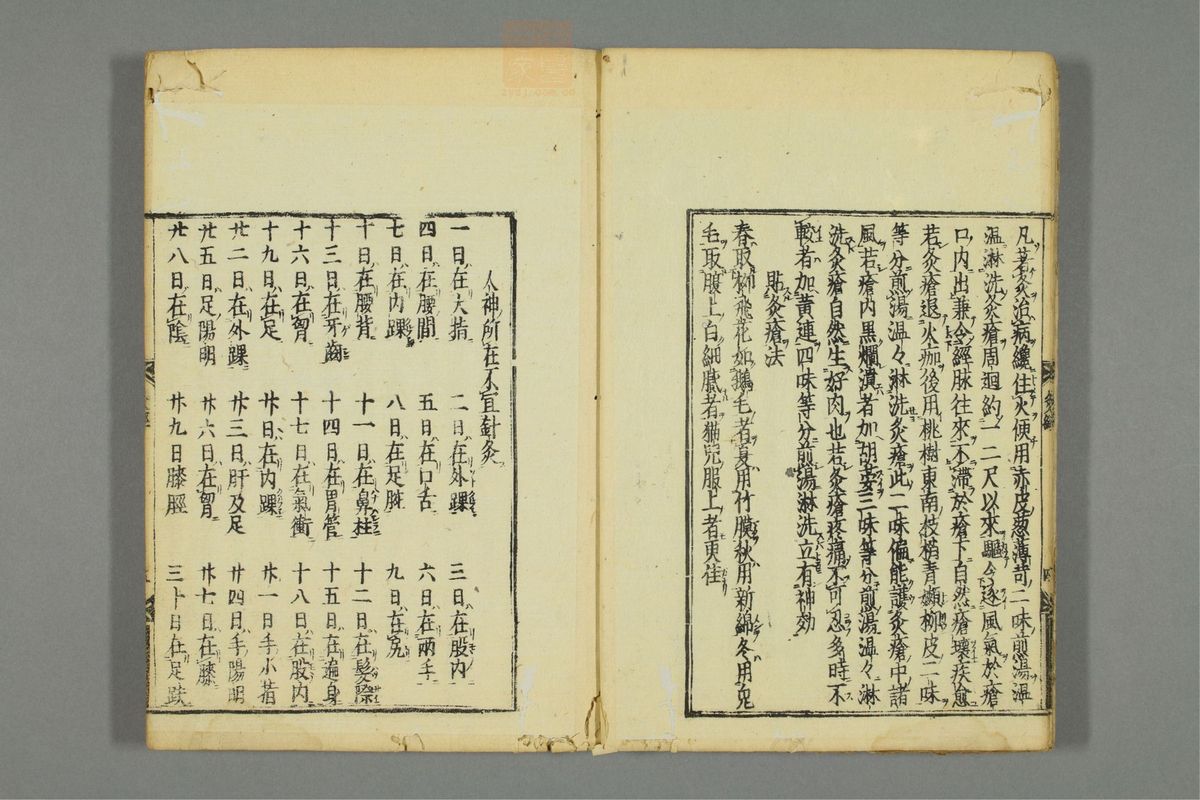 凡著灸治病纔住火便用赤皮葱薄苛二味煎湯温
温淋洗灸瘡周廻約一二尺以來驅令逐風氣於瘡
口内出兼令經脉往來不滯於瘡下自然瘡壞疾愈
若灸瘡退火痂後用桃樹東南枝梢青嫰柳皮二味
等分煎湯温々淋洗灸瘡此二味偏能護灸瘡中諸
風若瘡内黒爛潰者加胡荽三味等分煎湯温々淋
洗灸瘡自然生好肉也若灸瘡疼痛不可忍多時不
較者加黄連四味等分煎湯淋洗立有神効
貼灸瘡法
春取柳飛花如鵝毛者夏用竹膜秋用新綿冬用兔
毛取腹上白細膩者猫兒腹上者更佳
人神所在不宜針灸
一日在大指 二日在外踝 三日在股内
四日在腰間 五日在口舌 六日在兩手
七日在内踝 八日在足腕 九日在尻
十日在腰背 十一日在鼻柱 十二日在髮際
十三日在牙齒 十四日在胃管 十五日在遍身
十六日在胷 十七日在氣衝 十八日在股内
十九日在足 廿日在内踝 廿一日手小指
廿二日在外踝 廿三日肝及足 廿四日手陽明
廿五日足陽明 廿六日在胷 廿七日在膝
廿八日在陰 廿九日膝脛 三十日在足趺